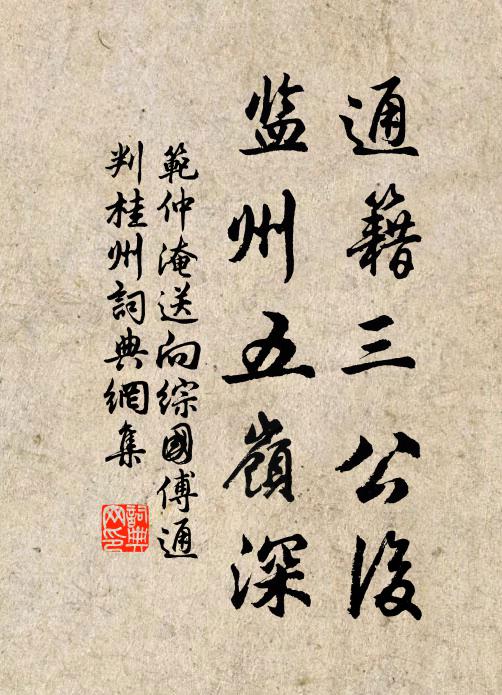 通籍三公後
监州五嶺深
範仲淹送向綜國傅通
判桂州詞典網集
詞典
网印